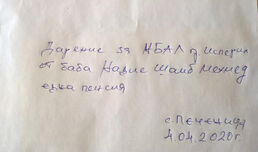 Дарение за МБАЛ гр. Исперих
от баба Надие Шаиб Мехмед
една пенсия
с. Печеница
4.04.2020г.